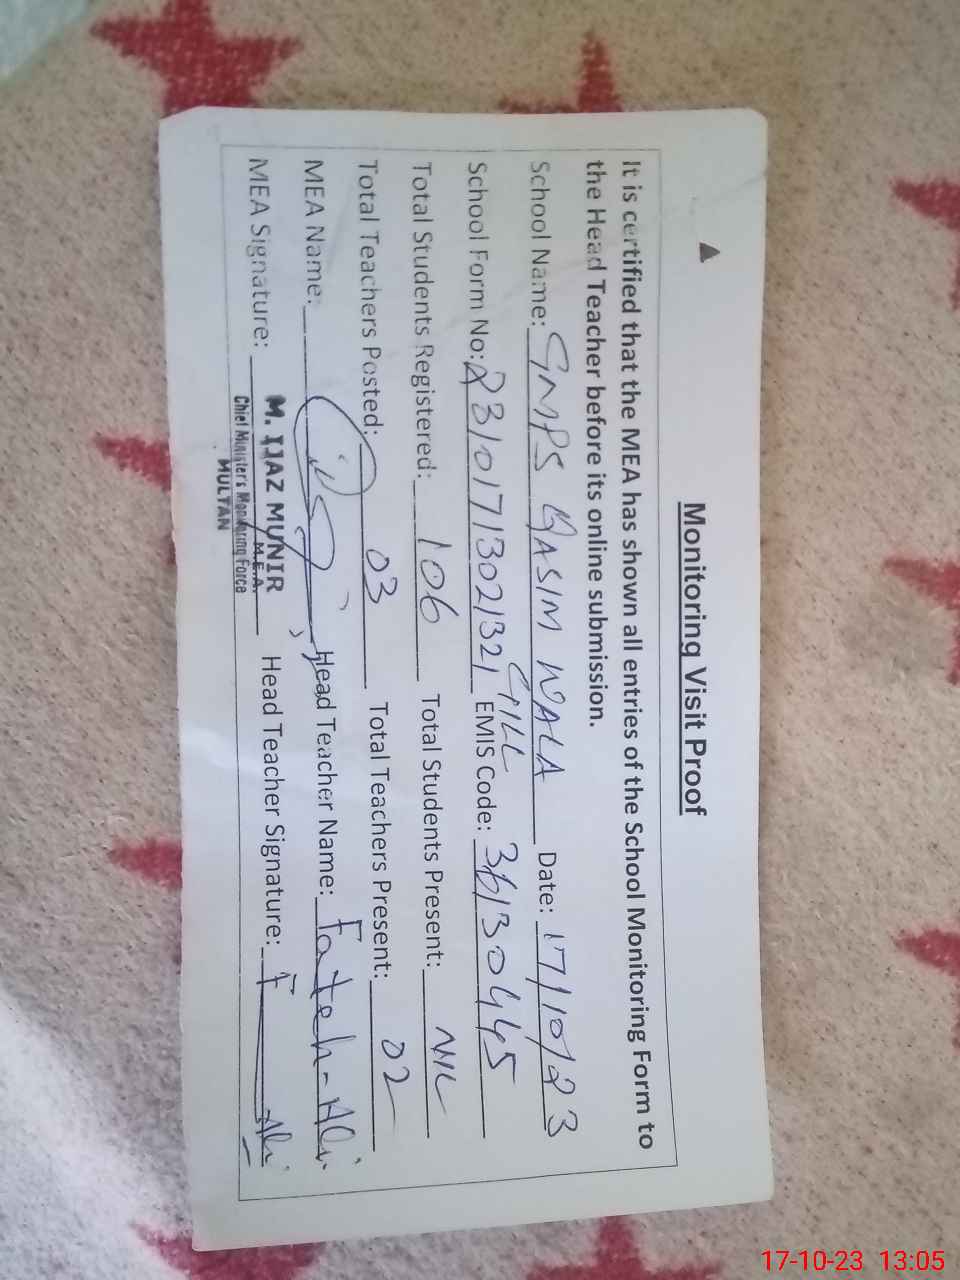 Monitoring Visit Proof
It is certified that the MEA has shown all entries of the School Monitoring Form to
the Head Teacher before its online submission.
School Name: GMPS QASIM WALA GILL Date: 17/10/23
School Form No: 23101713021321 EMIS Code: 36130445
Total Students Registered: 106 Total Students Present: NIL
Total Teachers Posted: 03 Total Teachers Present: 02
MEA Name: Head Teacher Name: Fateh-Ali
MEA Signature: Head Teacher Signature: F Ali
M. IJAZ MUNIR
M.E.A.
Chief Minister's Monitoring Force
MULTAN
17-10-23 13:05